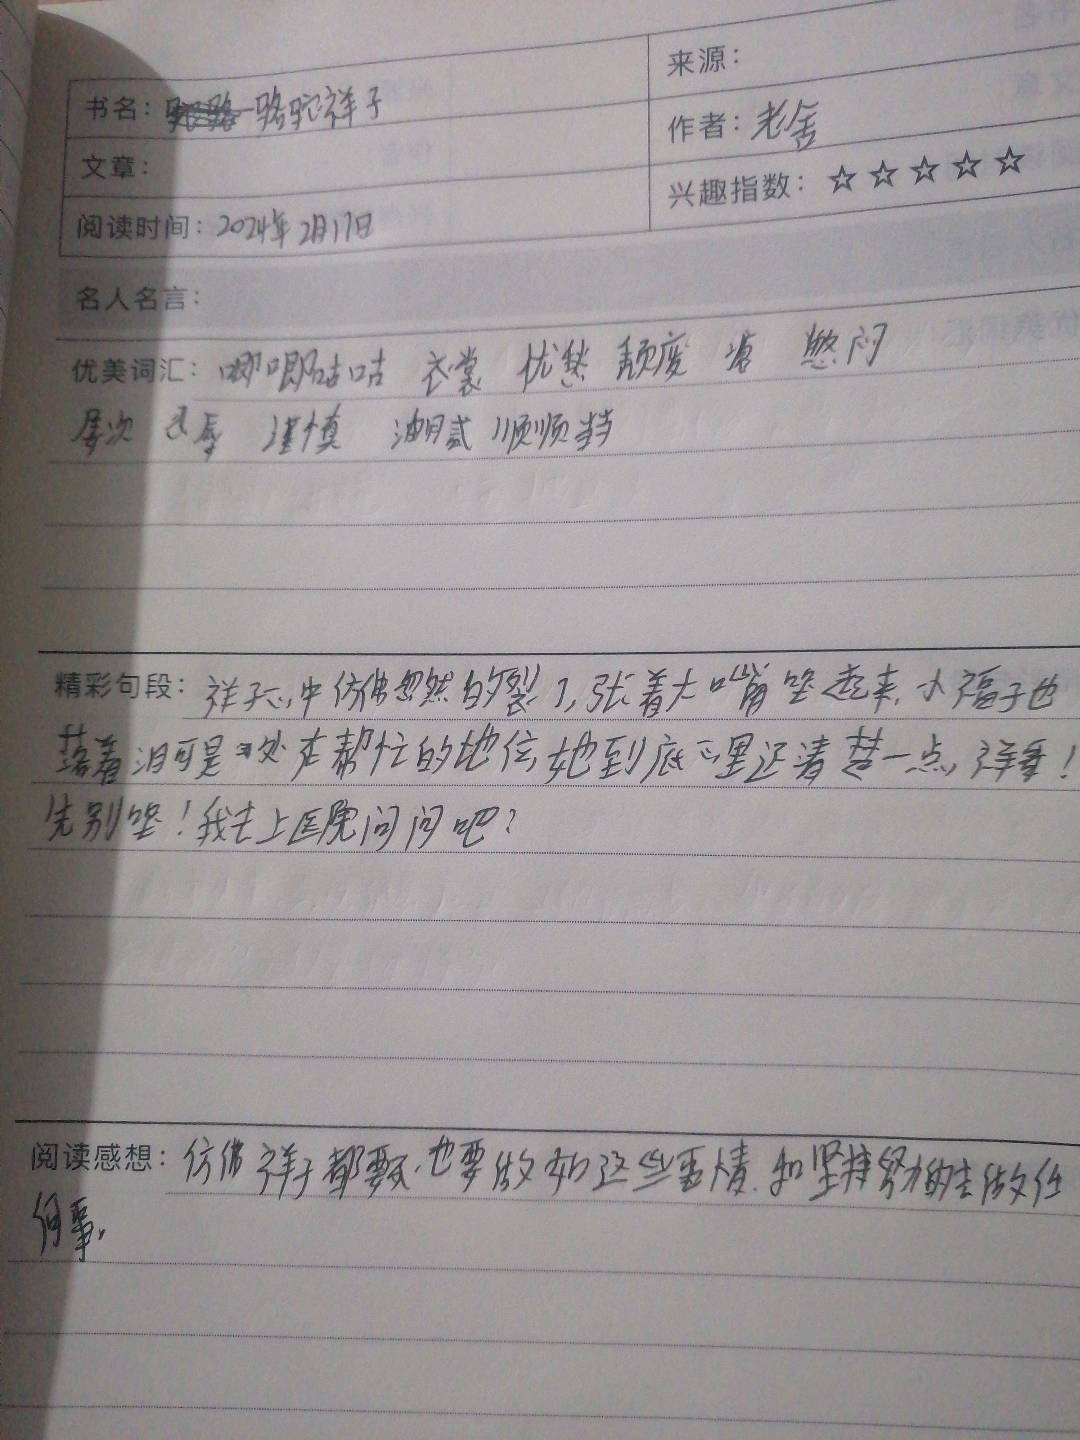 来源：
书名：骆驼祥子
作者：老舍
文章：
兴趣指数：☆☆☆☆☆
阅读时间：2024年2月17日
名人名言：
优美词汇：唧唧咕咕 衣裳 优然 颓废 憋闷
屡次 忍辱 谨慎 油腻 顺顺当当
精彩句段：祥子心中仿佛忽然的裂了，张着大嘴哭起来，小福子也
落着泪可是处在帮忙的地位，她到底心里还清楚一点，祥哥！
先别哭！我去上医院问问吧？
阅读感想：仿佛祥子都要 也要做如这些事情 和坚持努力的去做任
何事。